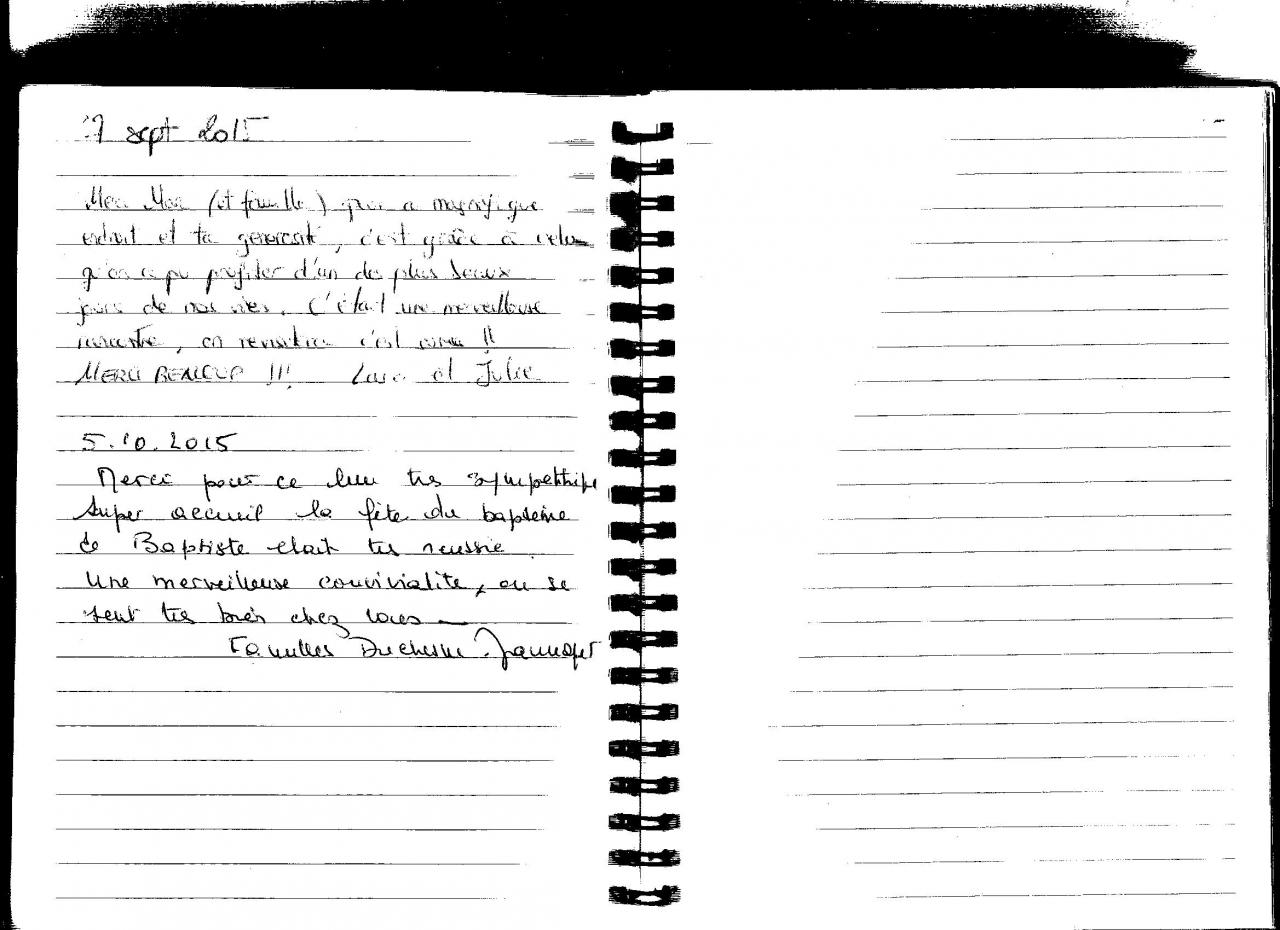 7 sept 2015
Merci (et famille) pour ce magnifique
endroit et ta générosité, c'est grâce à cela
qu'on a pu profiter d'un des plus beaux
jours de nos vies. C'était une merveilleuse
rencontre, on reviendra c'est !!
MERCI BEAUCOUP !!! et Julie
5.10.2015
Merci pour ce lieu très sympathique
super accueil la fête du baptême
de Baptiste était très réussie.
Une merveilleuse convivialité, on se
sent très bien chez vous
Familles Duchesne